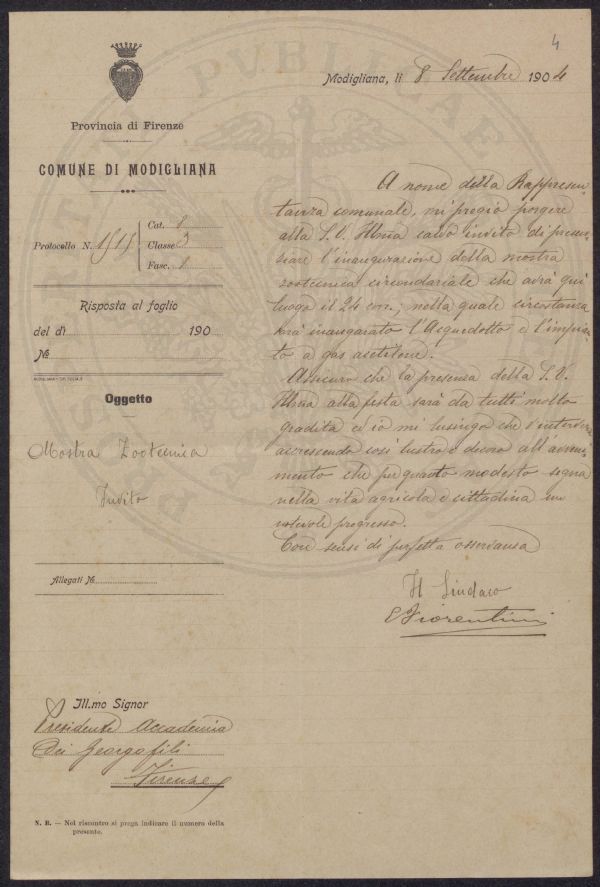 4
Modigliana, li 8 Settembre 1904
Provincia di Firenze
COMUNE DI MODIGLIANA
Protocollo N. 1515
Cat. 8
Classe 3
Fasc. 1
Risposta al foglio
del dì 190
№
Oggetto
Mostra Zootecnia
Invito
Allegati №
A nome della Rappresen-
tanza comunale, mi pregio porgere
alla S.V. Illma caldo invito di presen-
ziare l'inaugurazione della mostra
zootecnica circondariale che avrà qui
luogo il 24 corr.; nella quale circostanza
sarà inaugurato l'Acquedotto e l'impian-
to a gas acetilene.
Assicuro che la presenza della S.V.
Illma alla festa sarà da tutti molto
gradita ed io mi lusingo che v'interverrà
accrescendo così lustro e decoro all'avveni-
mento che per quanto modesto segna
nella vita agricola e cittadina un
notevole progresso.
Con sensi di perfetta osservanza
Il Sindaco
Fiorentini
Ill.mo Signor
Presidente Accademia
dei Georgofili
Firenze
N. B. — Nel riscontro si prega indicare il numero della
presente.
PUBLICAE